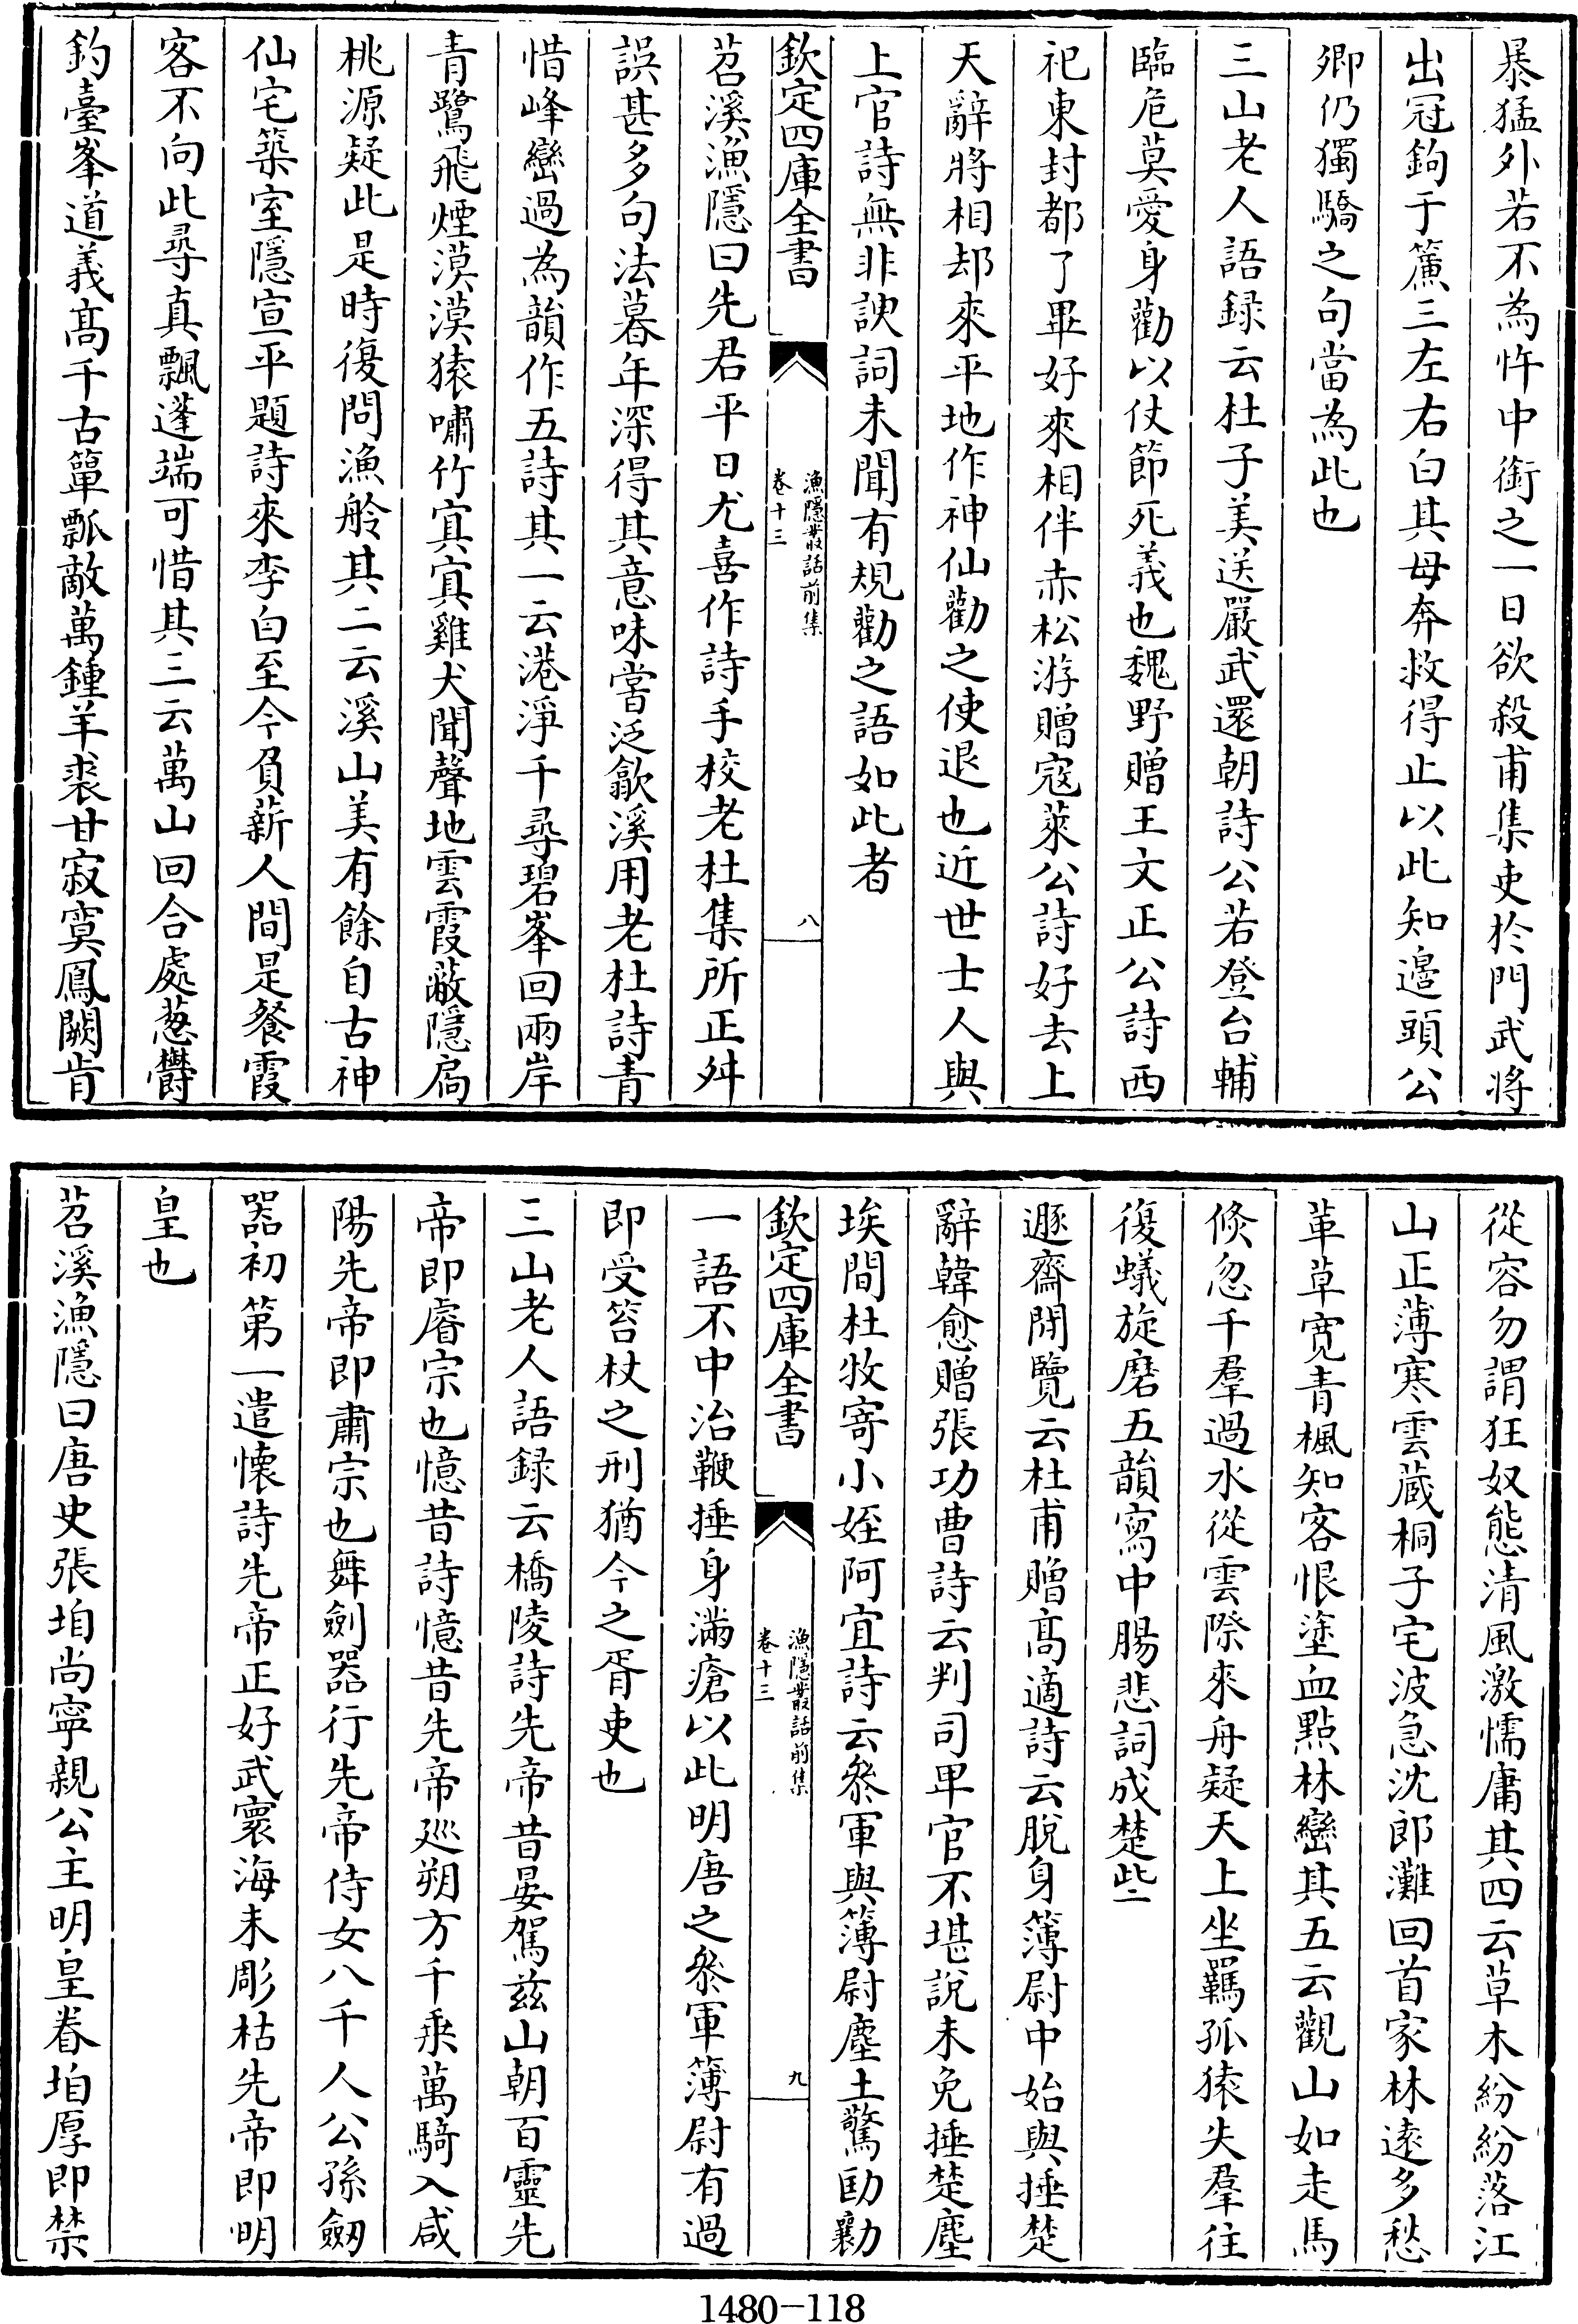 暴猛外若不為忤中銜之一日欲殺甫集吏於門武将
出冠鉤于簾三左右白其母奔救得止以此知邉頭公
卿仍獨驕之句當為此也
三山老人語録云杜子美送嚴武還朝詩公若登台輔
臨危莫愛身勸以仗節死義也魏野贈王文正公詩西
祀東封都了畢好來相伴赤松游贈寇萊公詩好去上
天辭將相却來平地作神仙勸之使退也近世士人與
上官詩無非諛詞未聞有規勸之語如此者
欽定四庫全書
漁隱叢話前集
卷十三
八
苕溪漁隱曰先君平日尤喜作詩手校老杜集所正舛
誤甚多句法暮年深得其意味嘗泛歙溪用老杜詩青
惜峰巒過為韻作五詩其一云港淨千尋碧峯回兩岸
青鷺飛煙漠漠猿嘯竹寘寘雞犬聞聲地雲霞蔽隱扃
桃源疑此是時復問漁舲其二云溪山美有餘自古神
仙宅築室隱宣平題詩來李白至今負薪人間是餐霞
客不向此尋真飄蓬端可惜其三云萬山回合處葱欝
釣臺峯道義髙千古簞瓢敵萬鍾羊裘甘寂寞鳳闕肯
從容勿謂狂奴態清風激懦庸其四云草木紛紛落江
山正薄寒雲蔵桐子宅波急沈郎灘回首家林遠多愁
革草寛青楓知客恨塗血點林巒其五云觀山如走馬
倐忽千羣過水從雲際來舟疑天上坐羈孤猿失羣往
復蟻旋磨五韻寫中腸悲詞成楚些
遯齋閒覽云杜甫贈髙適詩云脫身簿尉中始與捶楚
辭韓愈贈張功曹詩云判司卑官不堪說未免捶楚塵
埃間杜牧寄小姪阿宜詩云叅軍與簿尉塵土驚劻勷
欽定四庫全書
漁隱叢話前集
卷十三
九
一語不中治鞭捶身滿瘡以此明唐之叅軍簿尉有過
即受笞杖之刑猶今之胥吏也
三山老人語録云橋陵詩先帝昔晏駕兹山朝百靈先
帝即睿宗也憶昔詩憶昔先帝廵朔方千乗萬騎入咸
陽先帝即肅宗也舞劍器行先帝侍女八千人公孫劔
器初第一遣懐詩先帝正好武寰海未彫枯先帝即明
皇也
苕溪漁隱曰唐史張垍尚寧親公主明皇眷垍厚即禁
1480-118